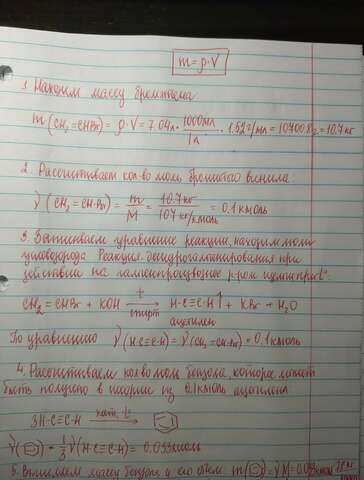 m = ρ·V
1. Находим массу бромэтена:
m (CH₂=CHBr) = ρ·V = 7.04л · 1000мл/1л · 1.52г/мл = 10700.8г = 10.7кг
2. Рассчитываем кол-во моль бромистого винила:
ν (CH₂=CH-Br) = m/M = 10.7кг / 107 кг/кмоль = 0.1 кмоль
3. Выписываем уравнение реакции, находим моли
углеводорода. Реакция дегидрогалогенирования при
действии на галогенпроизводное
CH₂=CHBr + KOH →(t, спирт) H-C≡C-H↑ + KBr + H₂O
ацетилен
По уравнению ν(H-C≡C-H) = ν(CH₂=CH-Br) = 0.1 кмоль
4. Рассчитываем кол-во моль бензола, которое может
быть получено в теории из 0.1 кмоль ацетилена
3H-C≡C-H →(кат., t°)
ν( ) = 1/3 ν(H-C≡C-H) = 0.033кмоль
5. Вычисляем массу бензола и его объем m( ) = ν·M = 0.033кмоль